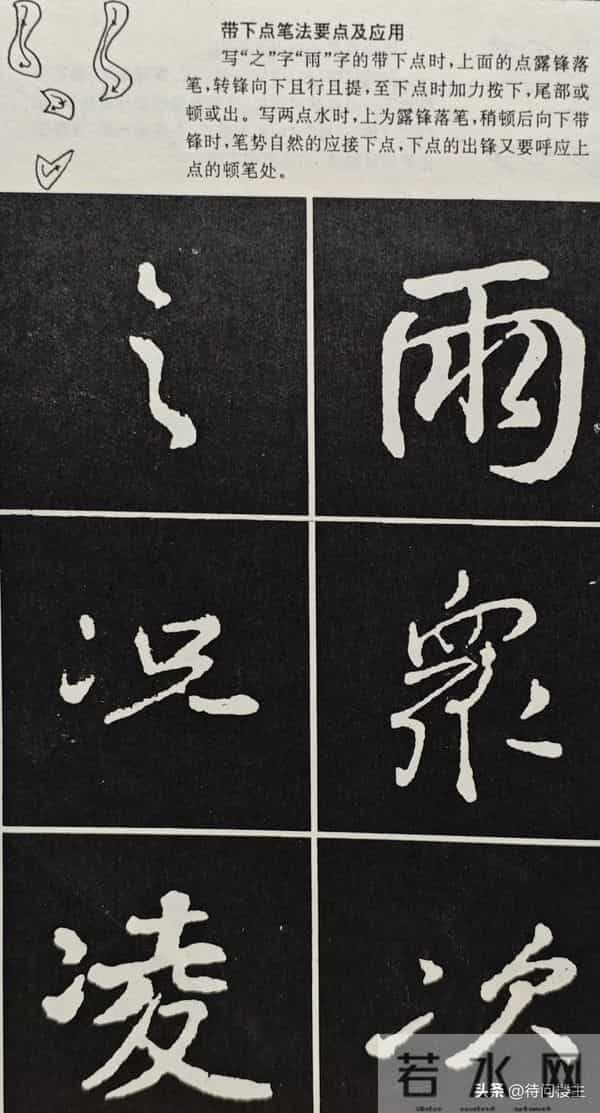 带下点笔法要点及应用
写“之”字“雨”字的带下点时，上面的点露锋落
笔，转锋向下且行且提，至下点时加力按下，尾部或
顿或出。写两点水时，上为露锋落笔，稍顿后向下带
锋时，笔势自然的应接下点，下点的出锋又要呼应上
点的顿笔处。
之 雨
况 眾
凌 次
若水网
头条@待问楼主